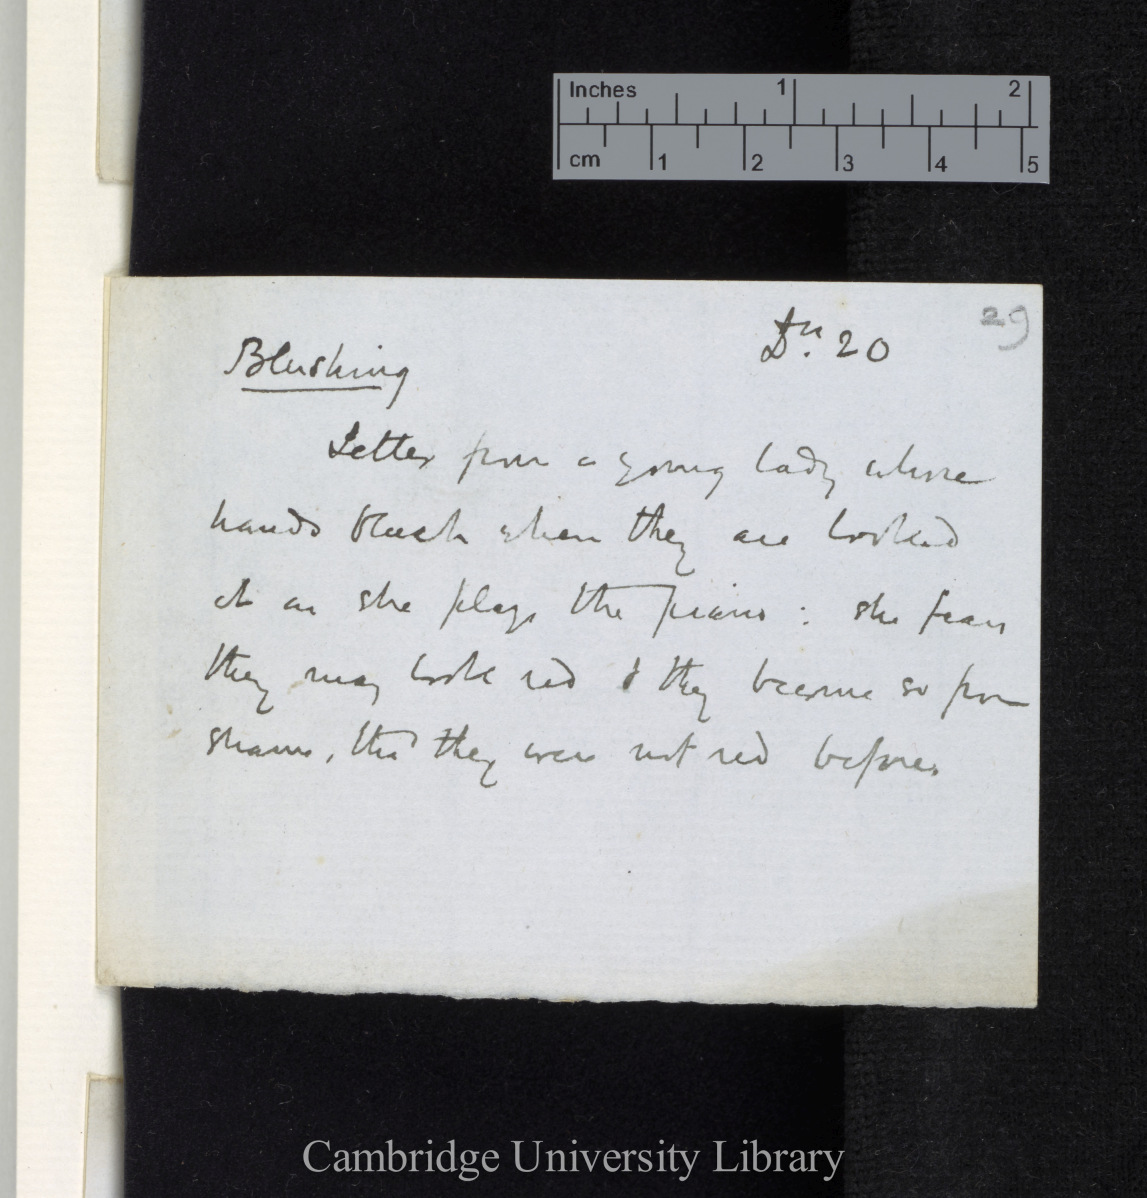 Inches 1 2
cm 1 2 3 4 5
29
Dn. 20
Blushing
Letter from a young lady whose
hands blush when they are looked
at as she plays the piano : she fears
they may look red & they become so from
shame, tho' they were not red before.
Cambridge University Library